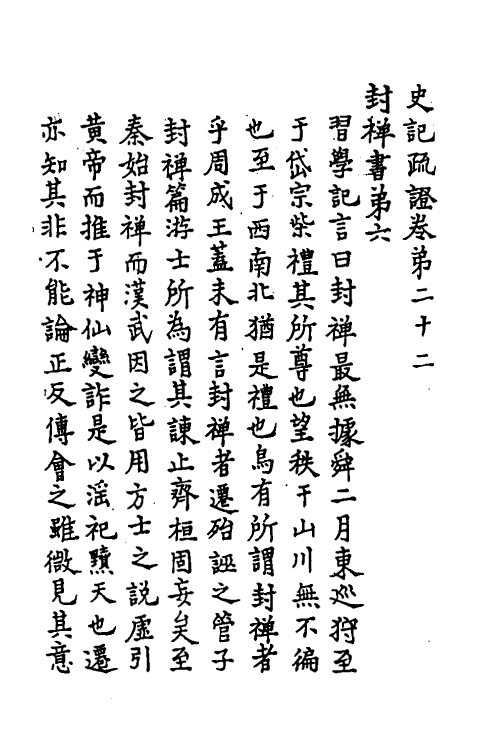 史記疏證卷弟二十二
封禅書弟六
習學記言曰封禅最無據舜二月東巡狩至
于岱宗柴禮其所尊也望秩于山川無不徧
也至于西南北猶是禮也烏有所謂封禅者
乎周成王蓋未有言封禅者遷殆誣之管子
封禅篇游士所為謂其諫止齊桓固妄矣至
秦始封禅而漢武因之皆用方士之說虛引
黄帝而推于神仙變詐是以滛祀黷天也遷
亦知其非不能論正反傅會之雖微見其意